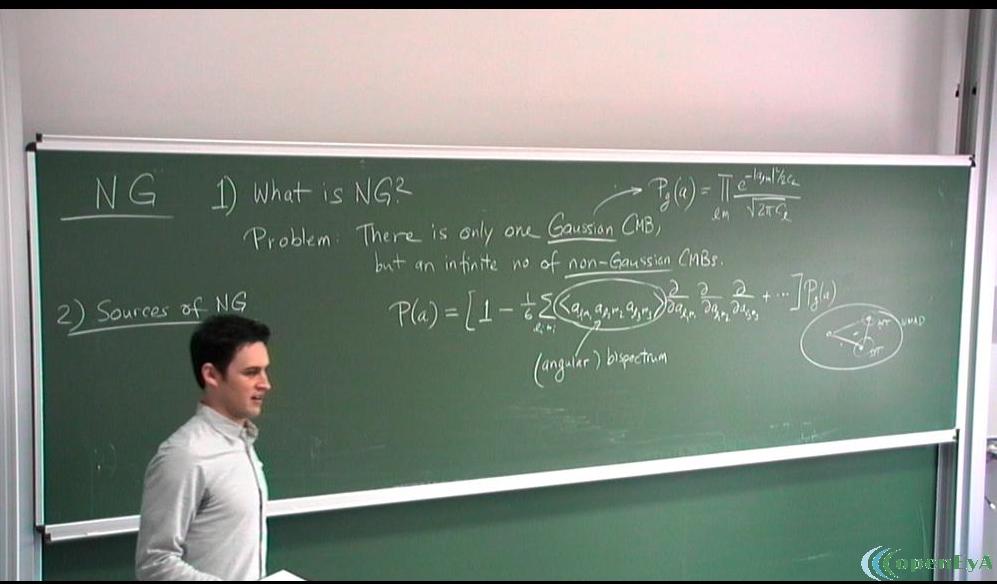 NG
1) What is NG?
P_g(a) = ∏_{lm} e^{-|a_{lm}|²/2C_l} / √(2πC_l)
Problem: There is only one Gaussian CMB,
but an infinite no of non-Gaussian CMBs.
2) Sources of NG
P(a) = [1 - 1/6 Σ_{l_i m_i} ⟨a_{l_1m_1} a_{l_2m_2} a_{l_3m_3}⟩ ∂/∂a_{l_1m_1} ∂/∂a_{l_2m_2} ∂/∂a_{l_3m_3} + ...] P_g(a)
(angular) bispectrum
WMAP
openEyA